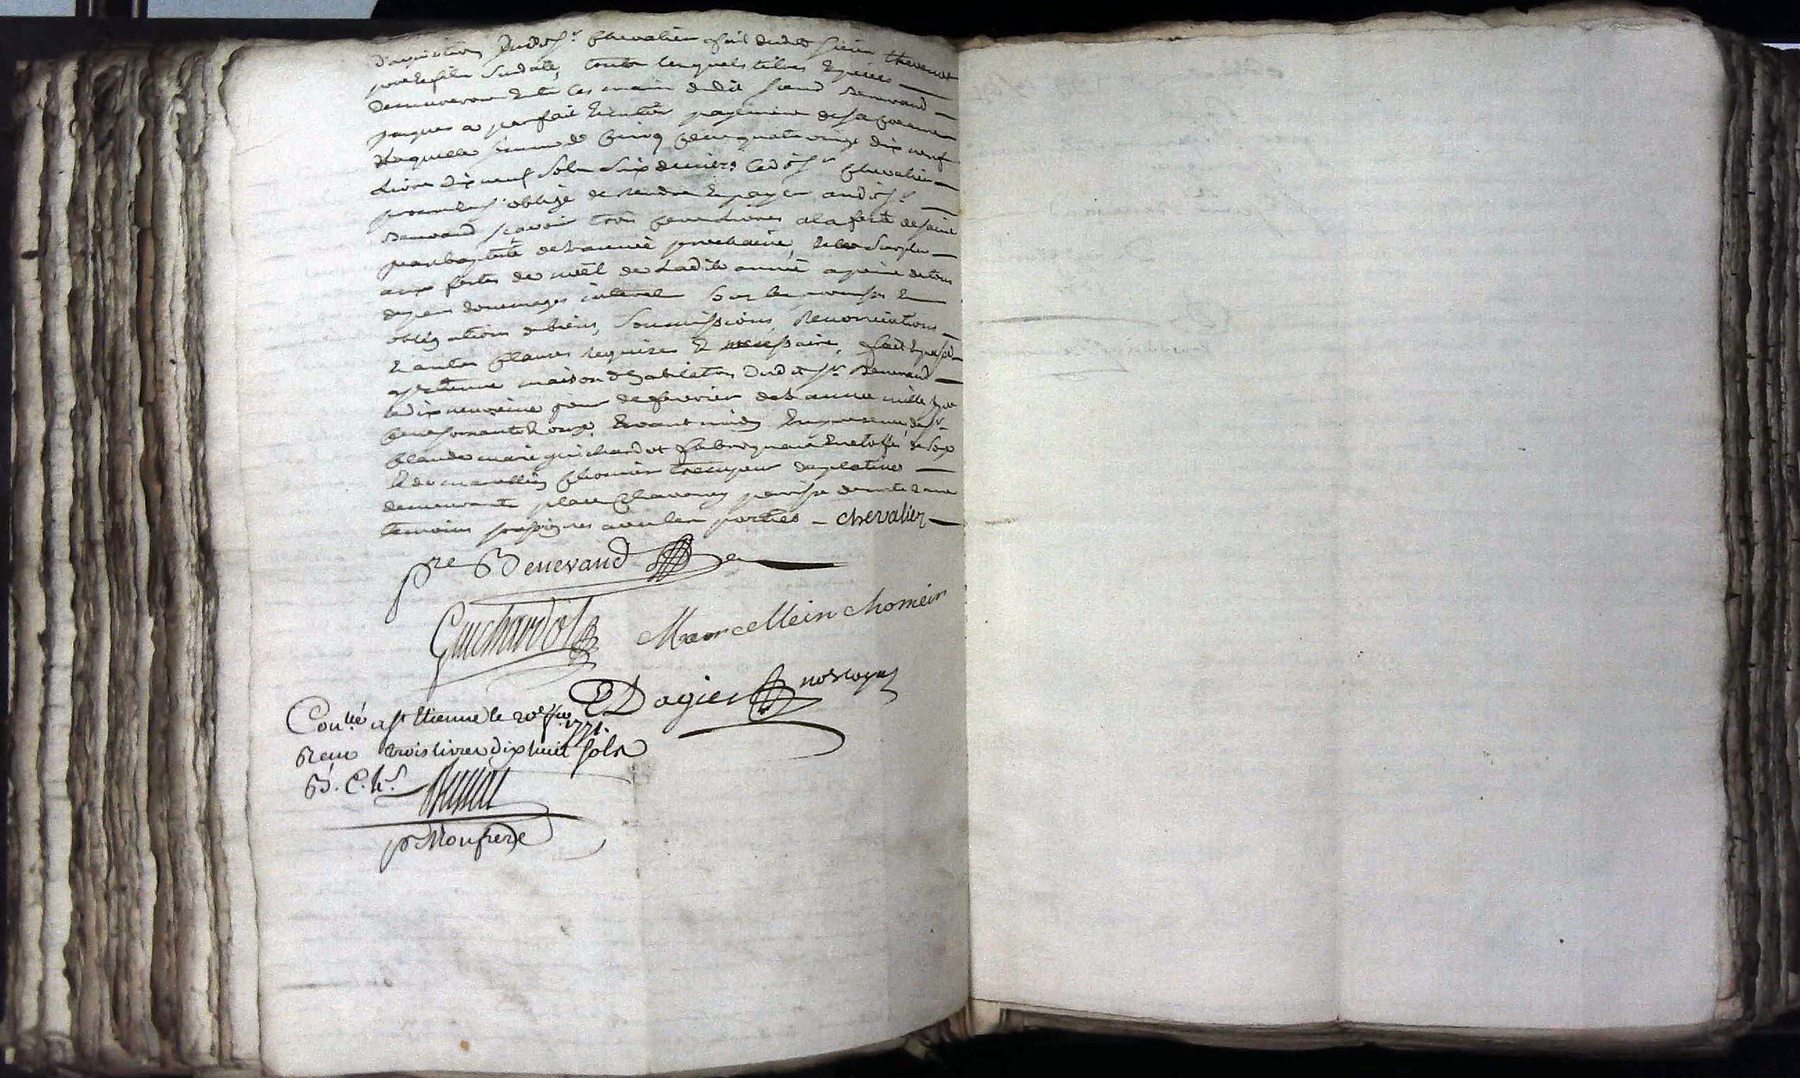 d'aquisition dudit sr. chevalier & fait dudit sieur thevenot
sudate, toutes lesquels titres & pieces
demureront entre les mains dudit sieur Benevand
jusques a parfait & entier payement de sa
laquelle somme de cinq cent quatre vingt dix neuf
Livres dix neuf sols six deniers ledit sr. chevalier
promet & s'oblige de rendre & payer audit sr.
Benevand scavoir trois cent livres a la fete de saint
jean baptiste de l'année prochaine, & le surplus
aux fetes de noël de ladite année a peine de tous
depens dommages interets sous les
obligations de biens, soumissions, Renonciations
& autres clauses requises & necessaire, fait & passé
maison d'habitation dudit sr. Benevand
le dix neuvieme jour de fevrier de l'année mille sept
cent soixante & onze, avant midy en presence de sr.
claude marie guichardot fabriquant en etoffe de soye
& de marcellin chomein de platine
demeurants place chavanel paroisse
temoins soussignes avec les parties – chevalier
pre Benevand
Guichardot Marcellein chomein
Dagier notoyal
Conlé a st. Etienne le 20e. fer. 1771.
Reçu trois livres dix huit sols
B. C. hs.
pr Monfrere